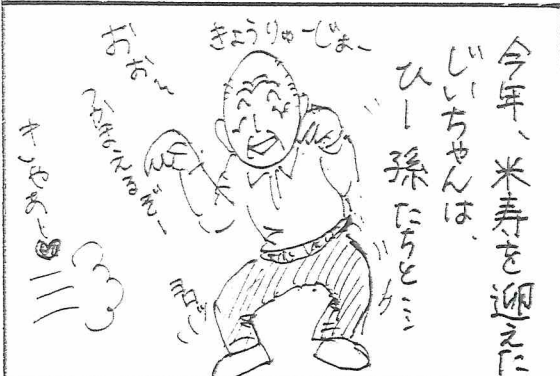 今年、米寿を迎えた
じいちゃんは、
ひー孫たちと…
きょうりゅーじゃー
おぉ〜
つかまえるぞー
きゃあー
ヨロッ